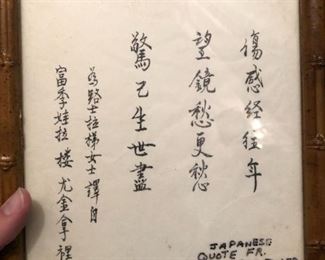 傷感经往年
望鏡愁更愁
驚己生世盡
為路士拉梯女士譯自
富季娃拉楼尤金拿裡
JAPANESE
QUOTE FR.